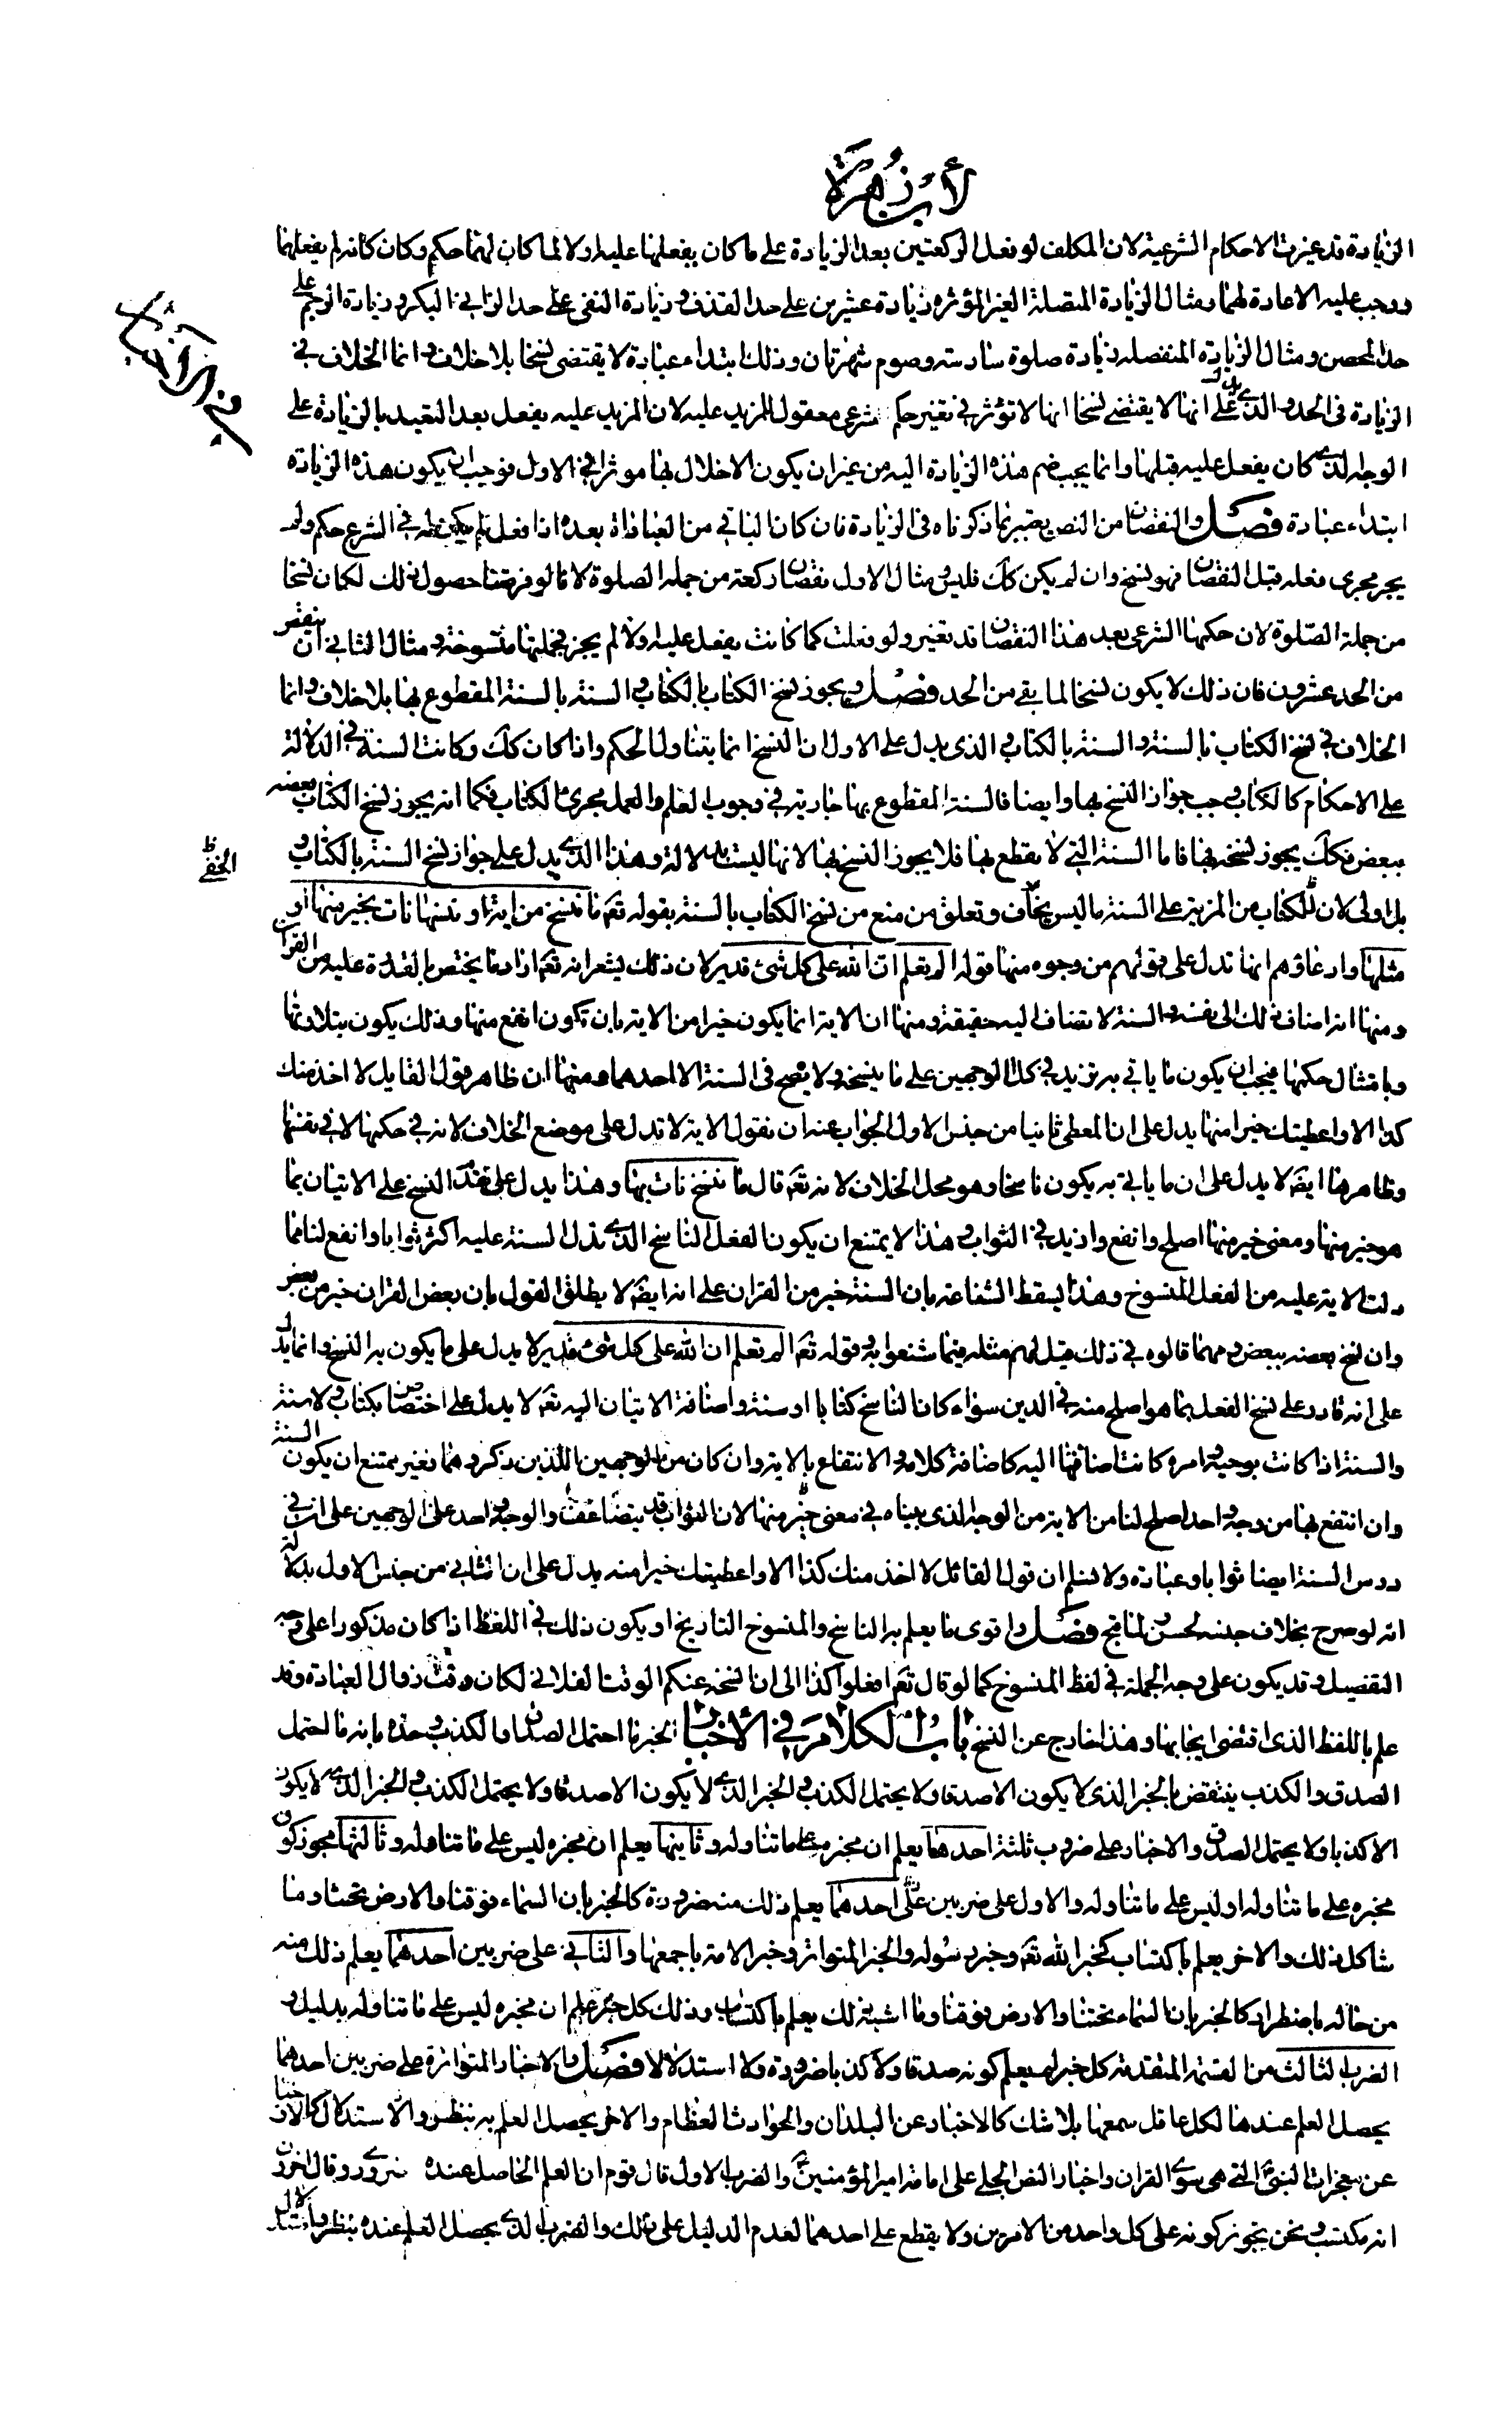 لأبن زهرة
الزيادة قد غيرت الاحكام الشرعية لان المكلف لو فعل الركعتين بعد الزيادة على ما كان يفعلها عليه اولا لما كان لهما حكم وكان كانه لم يفعلهما
ووجب عليه الاعادة لهما ومثال الزيادة المتصلة الغير المؤثرة زيادة عشرين على حد القذف و زيادة النفى على حد الزانى البكر و زيادة الرجم على
حد المحصن ومثال الزيادة المنفصلة زيادة صلوة سادسة وصوم شهر ثان وذلك ابتداء عبادة لا يقتضى نسخا بلا خلاف و انما الخلاف في
الزيادة فى الحد و الذى يدل على انها لا يقتضى نسخا انها لا تؤثر في تغير حكم شرعى معقول للمزيد عليه لان المزيد عليه يفعل بعد التعبد بالزيادة على
الوجه الذى كان يفعل عليه قبلها وانما يجب ضم هذه الزيادة اليه من غير ان يكون الاخلال بها موثرا في الاول فوجب ان يكون هذه الزيادة
ابتداء عبادة فصل والنقصان من النص يعتبر بما ذكرناه فى الزيادة فان كان الباقى من العبادة بعده اذا فعل لم يكن له في الشرع حكم ولم
يجر مجرى فعله قبل النقصان فهو نسخ وان لم يكن كك فليس ومثال الاول نقصان ركعة من جملة الصلوة لانا لو فرضنا حصول ذلك لكان نسخا
من جملة الصلوة لان حكمها الشرعى بعد هذا النقصان قد تغير ولو فعلت كما كانت يفعل عليه اولا لم يجز فجملتها منسوخة و مثال الثانى ان ينقص
من الحد عشرون فان ذلك لا يكون نسخا لما بقى من الحد فصل و يجوز نسخ الكتاب بالكتاب و السنة بالسنة المقطوع بها بلا خلاف و انما
الخلاف في نسخ الكتاب بالسنة و السنة بالكتاب و الذى يدل على الاول ان النسخ انما يتناول الحكم واذا كان كك وكانت السنة فى الدلالة
على الاحكام كالكتاب وجب جواز النسخ بها وايضا فالسنة المقطوع بها جارية في وجوب العلم والعمل مجرى الكتاب فكما انه يجوز نسخ الكتاب بعضه
ببعض فكك يجوز نسخه بها فاما السنة التي لا يقطع بها فلا يجوز النسخ بها لانها ليست بدلالة وهذا الذى يدل على جواز نسخ السنة بالكتاب و
بل اولى لان للكتاب من المزية على السنة ما ليس بخاف وتعلق من منع من نسخ الكتاب بالسنة بقوله تعم ما ننسخ من اية او ننسها نات بخير منها او
مثلها وادعاؤهم انها تدل على قولهم من وجوه منها قوله الم تعلم ان الله على كل شئ قدير لان ذلك يشعر انه تعم اراد ما يختص بالقدرة عليه من القرآن
ومنها انه اضاف ذلك الى نفسه و السنة لا تضاف اليه حقيقة ومنها ان الاية انما يكون خيرا من الاية بان تكون انفع منها وذلك يكون بتلاوتها
وبامتثال حكمها فيجب ان يكون ما ياتى به تزيد في كلا الوجهين على ما ينسخه و لا يصح فى السنة الا احدهما ومنها ان ظاهر قول القايل لا اخذ منك
كذا الا واعطيتك خيرا منها يدل على ان المعطى ثانيا من جنس الاول الجواب عنه ان نقول الاية لا تدل على موضع الخلاف لانه في حكمها لا في نفسها
وظاهرها ايضا لا يدل على ان ما ياتى به يكون ناسخا وهو محل الخلاف لانه تعم قال ما ننسخ نات بها وهذا يدل على تقدم النسخ على الاتيان بما
هو خير منها ومعنى خير منها اصلح وانفع وازيد في الثواب و هذا لا يمتنع ان يكون الفعل الناسخ الذى تدل السنة عليه اكثر ثوابا وانفع لنا مما
دلت الاية عليه من الفعل المنسوخ وهذا يسقط الشناعة بان السنة خير من القران على انه ايضا لا يطلق القول بان بعض القران خير من بعض
وان نسخ بعضه ببعض و مهما قالوه في ذلك قيل لهم مثله فيما شنعوا به و قوله تعم الم تعلم ان الله على كل شئ قدير لا يدل على ما يكون به النسخ وانما يدل
على انه قادر على نسخ الفعل بما هو اصلح منه في الدين سواء كان الناسخ كتابا او سنة و اضافة الاتيان اليه تعم لا يدل على اختصاص بكتاب و لا سنة
والسنة اذا كانت بوحيه و امره كانت اضافتها اليه كاضافة كلامه و الانتفاع بالاية وان كان من الوجهين اللذين ذكروهما فغير ممتنع ان يكون السنة
وان انتفع بها من وجه واحد اصلح لنا من الاية من الوجه الذى بيناه في معنى خير منها لان الثواب قد يتضاعف والوجه واحد على الوجهين على ان في
درس السنة ايضا ثوابا وعبادة ولا نسلم ان قول القائل لا اخذ منك كذا الا واعطيتك خيرا منه يدل على ان الثانى من جنس الاول بدلالة
انه لو صرح بخلاف جنسه لحسن فصل واقوى ما يعلم به الناسخ والمنسوخ التاريخ او يكون ذلك في اللفظ اذا كان مذكورا على وجه
التفصيل و قد يكون على وجه الجملة في لفظ المنسوخ كما لو قال تعم افعلوا كذا الى ان نسخه عنكم الوقت الفلانى لكان وقت زوال العبادة وقد
علم باللفظ الذى اقتضى ايجابها وهذا خارج عن النسخ باب الكلام في الأخبار الخبر ما احتمل الصدق او الكذب و حده بانه ما احتمل
الصدق والكذب ينتقض بالخبر الذى لا يكون الا صدقا ولا يحتمل الكذب و الخبر الذى لا يكون الا صدقا ولا يحتمل الكذب و الخبر الذى لا يكون
الا كذبا ولا يحتمل الصدق والاخبار على ضروب ثلثة احدها يعلم ان مخبره على ما تناوله وثانيها يعلم ان مخبره ليس على ما تناوله وثالثها يجوز كون
مخبره على ما تناوله او ليس على ما تناوله والاول على ضربين احدهما يعلم ذلك منه ضرورة كالخبر بان السماء فوقنا والارض تحتنا وما
شاكل ذلك والاخر يعلم باكتساب كخبر الله تعم وخبر رسوله والخبر المتواتر وخبر الامة باجمعها والثانى على ضربين احدهما يعلم ذلك منه
من حاله باضطرار كالخبر بان السماء تحتنا والارض فوقنا وما اشبه ذلك يعلم باكتساب وذلك كل خبر علم ان مخبره ليس على ما تناوله بدليل و
الضرب الثالث من القسمة المتقدمة كل خبر لم يعلم كونه صدقا ولا كذبا ضرورة ولا استدلالا فصل والاخبار المتواترة على ضربين احدهما
يحصل العلم عندها لكل عاقل سمعها بلا شك كالاخبار عن البلدان والحوادث العظام والاخر يحصل العلم به بنظر و الاستدلال كالاخبار
عن معجزات النبى التى هى سوى القران واخبار النص الجلى على امامة امير المؤمنين والضرب الاول قال قوم ان العلم الحاصل عنده ضرورى و قال اخرون
انه مكتسب و نحن نجوز كونه على كل واحد من الامرين ولا يقطع على احدهما لعدم الدليل على ذلك والضرب الذى يحصل العلم عنده بنظر و استدلال